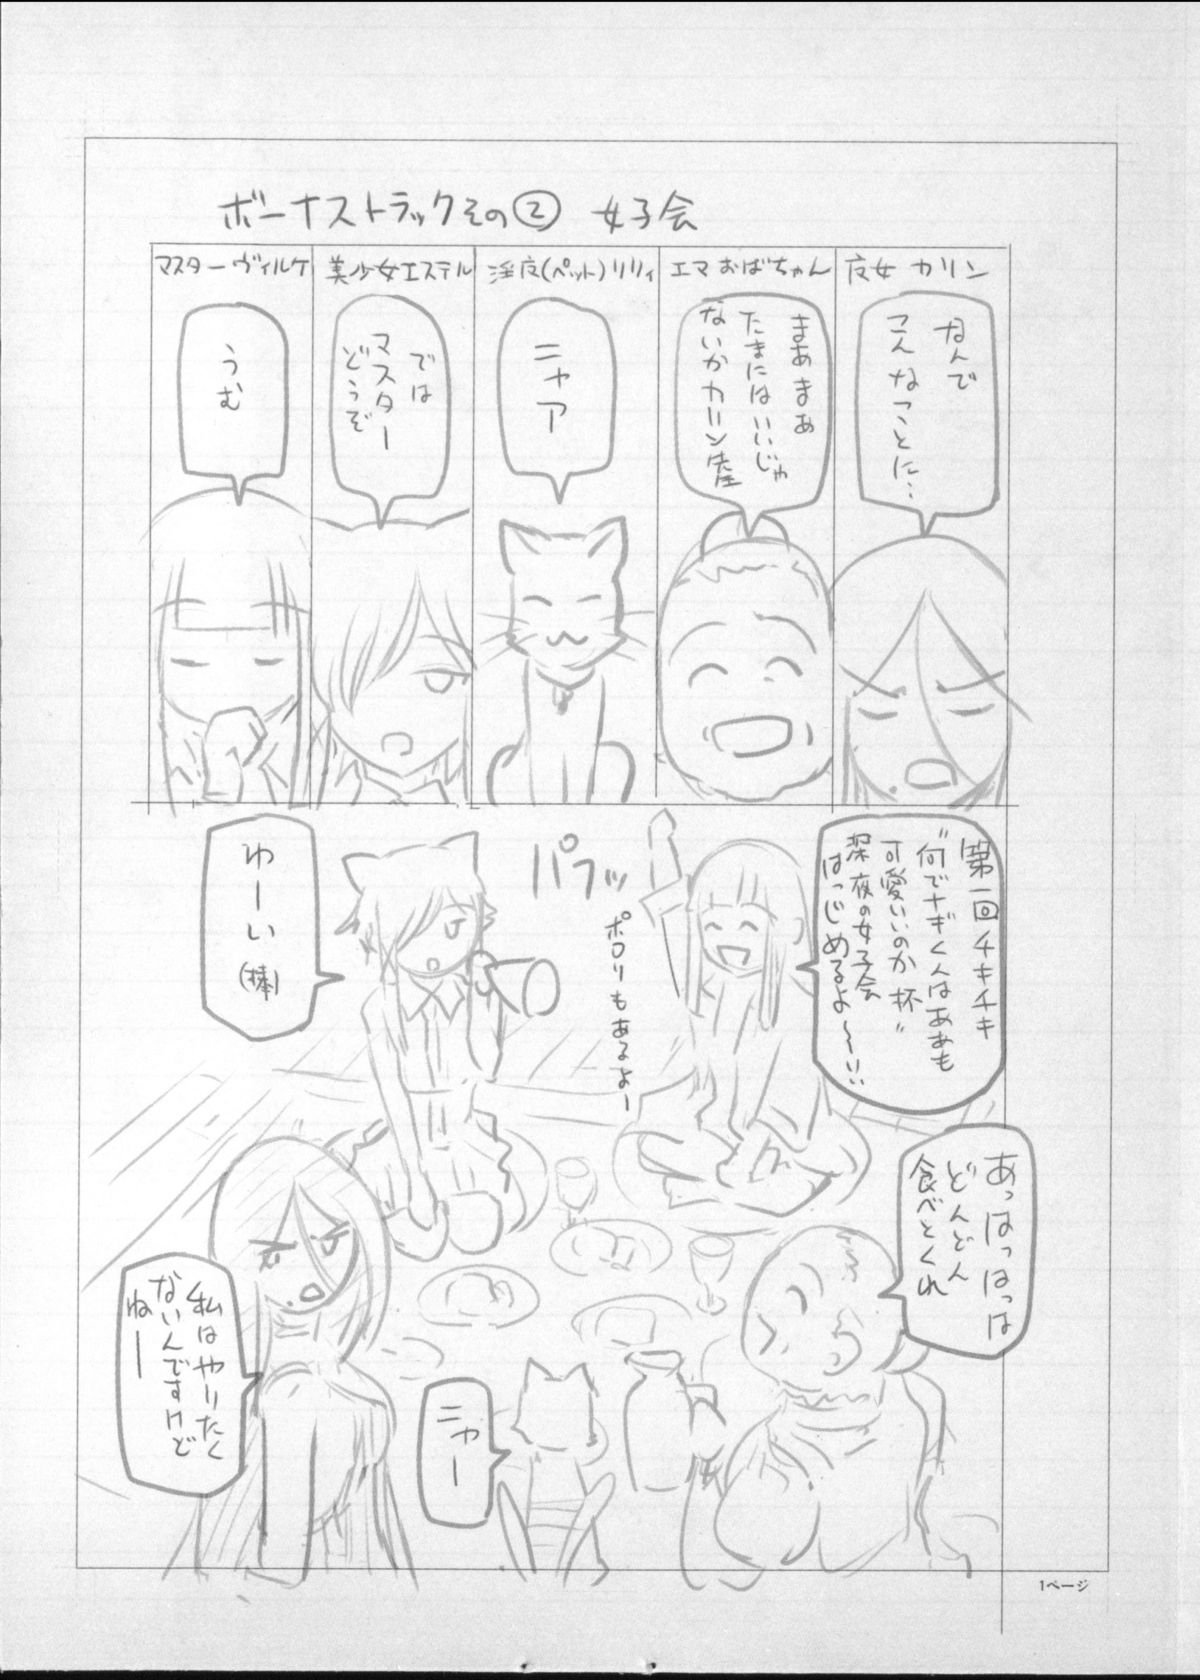 ボーナストラックその② 女子会
夜女 カリン
なんで
こんなことに…
エマおばちゃん
まあまあ
たまにはいいじゃ
ないかカリン
淫夜(ペット)リリィ
ニャア
美少女エステル
では
マスター
どうぞ
マスターヴィルケ
うむ
第一回チキチキ
“何でナギくんはああも
可愛いのか杯”
深夜の女子会
はっじめるよ〜〜!!
パフッ
ポロリもあるよー
わーい
(棒)
あっはっはっは
どんどん
食べとくれ
私はやりたく
ないんですけど
ねー
ニャー
1ページ